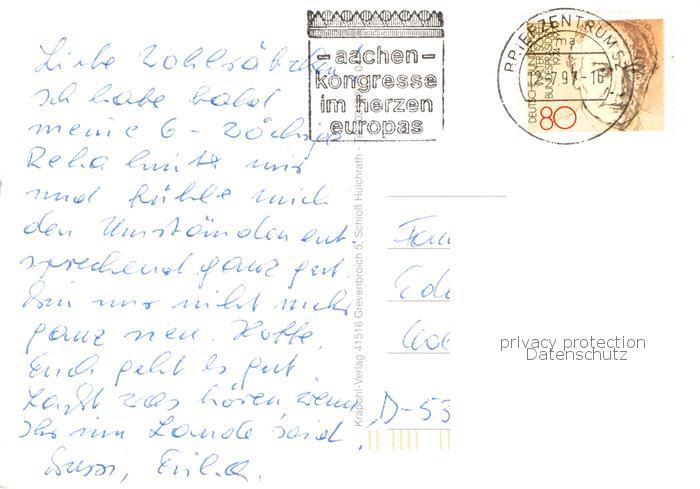 -aachen-
kongresse
im herzen
europas
BRIEFZENTRUM 52
ma
12.-7.97-16
DEUTSCHE BUNDESPOST
80
Liebe
ich habe bald
meine 6-wöchige
Reha hinter mir
und fühle mich
den Umständen ent-
sprechend ganz gut.
Bin nur nicht mehr
ganz neu. Hoffe,
Euch geht es gut.
Laßt was hören wenn
Ihr im Lande seid.
Bussi,
Krapohl-Verlag 41516 Grevenbroich 5, Schloß Hülchrath
Fam
D-53
privacy protection
Datenschutz